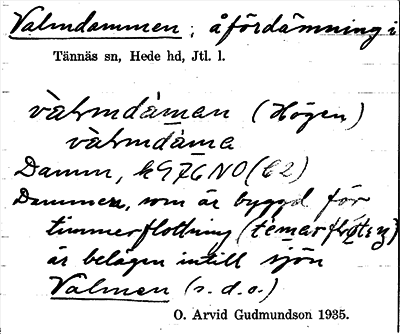 Valmdammen; åfördämning i
Tännäs sn, Hede hd, Jtl. l.
vàlmdàman (Högen)
vàlmdàma
Damm, k976NO(C2)
Dammen, som är byggd för
timmerflottning
är belägen intill sjön
Valmen (s.d.o.)
O. Arvid Gudmundson 1935.